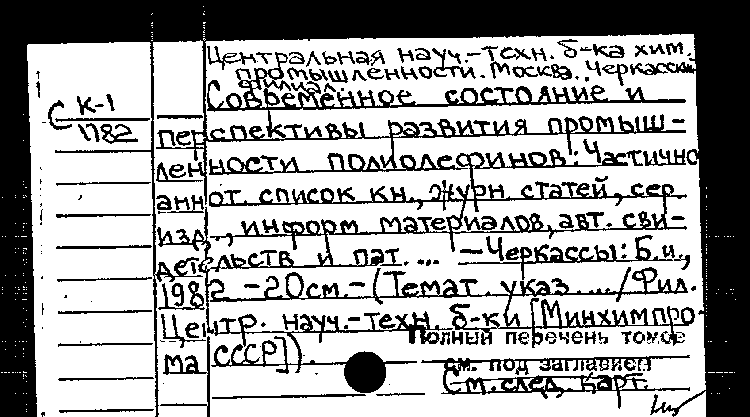 Центральная науч.-техн. б-ка хим.
промышленности. Москва. Черкасский
филиал.
С К-1
1782
Современное состояние и
перспективы развития промыш-
ленности полиолефинов: Частично
аннот. список кн., журн. статей, сер.
изд., информ материалов, авт. сви-
детельств и пат. ... — Черкассы: Б.и.,
1982 -20см.-(Темат. указ. .../Фил.
Центр. науч.-техн. б-ки [Минхимпро-
ма СССР]).
Полный перечень томов
см. под заглавием
См. след. карт.